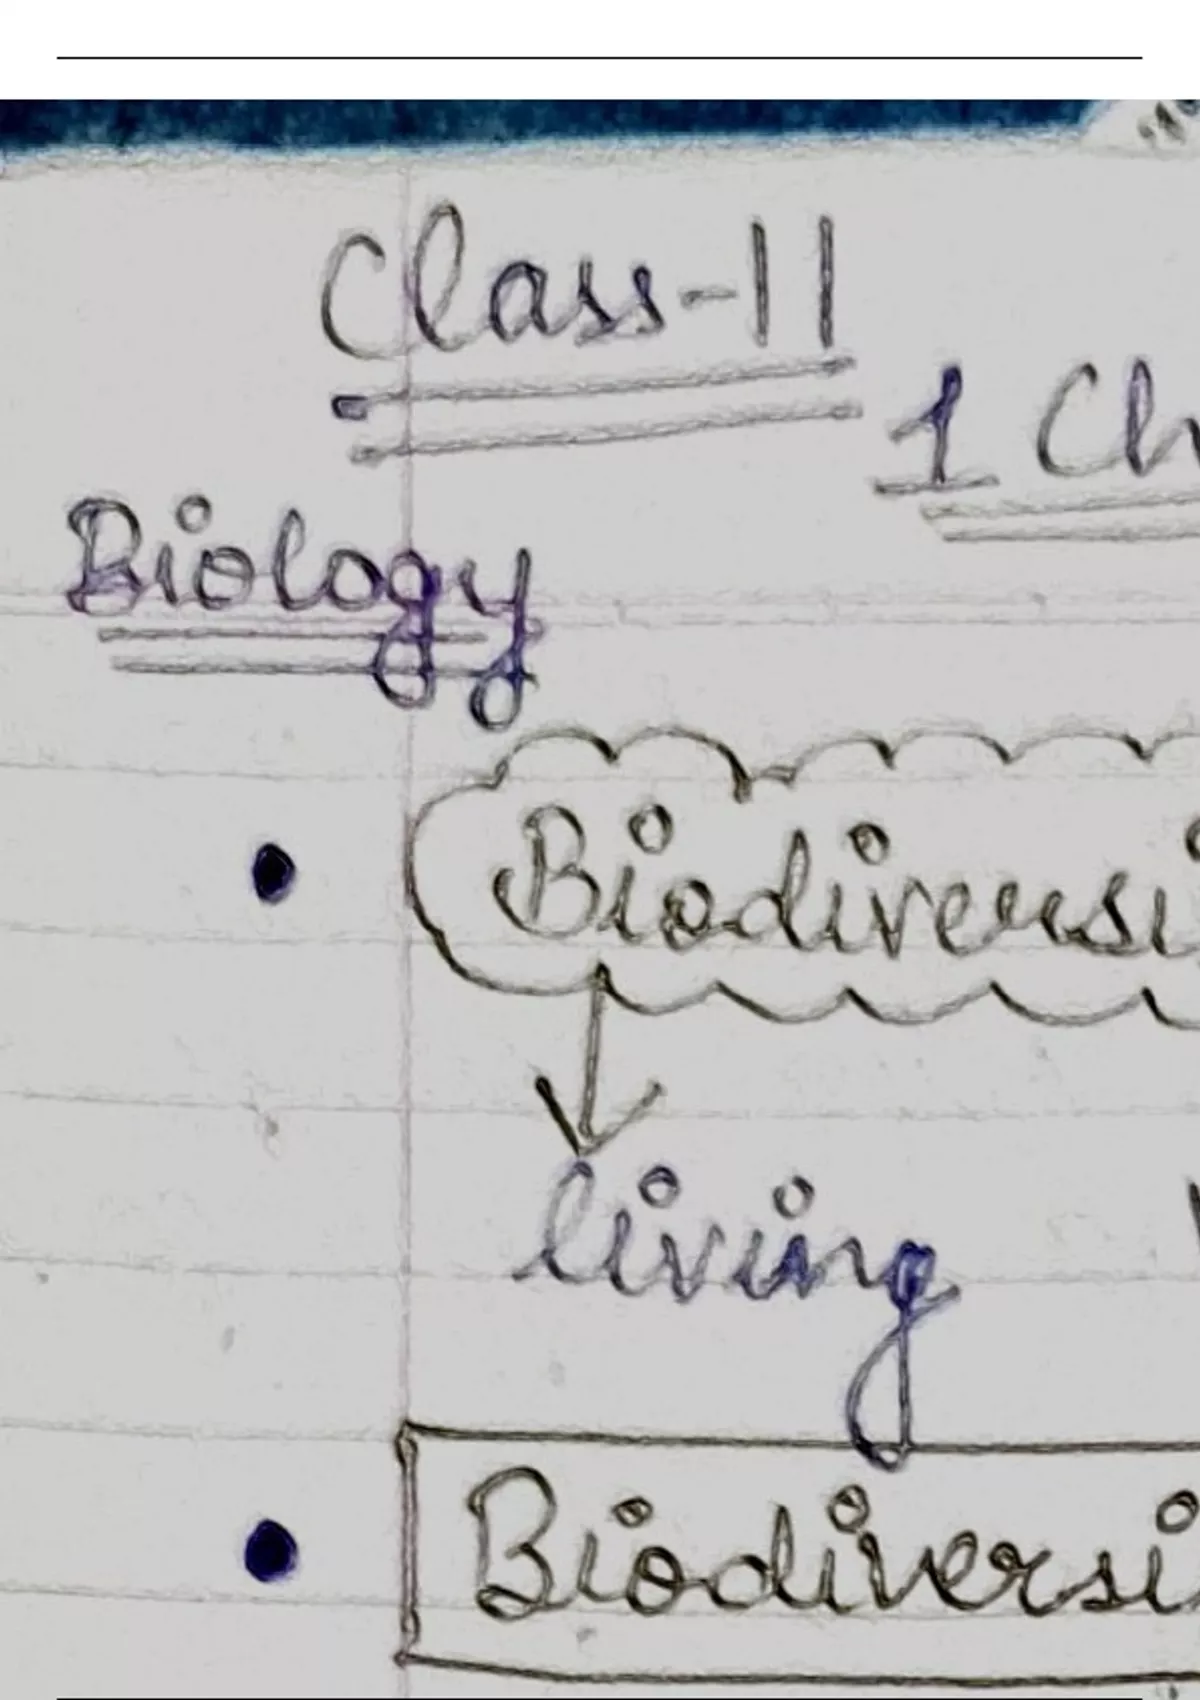 Class-11
1 Ch
Biology
Biodiversi
living
Biodiversi